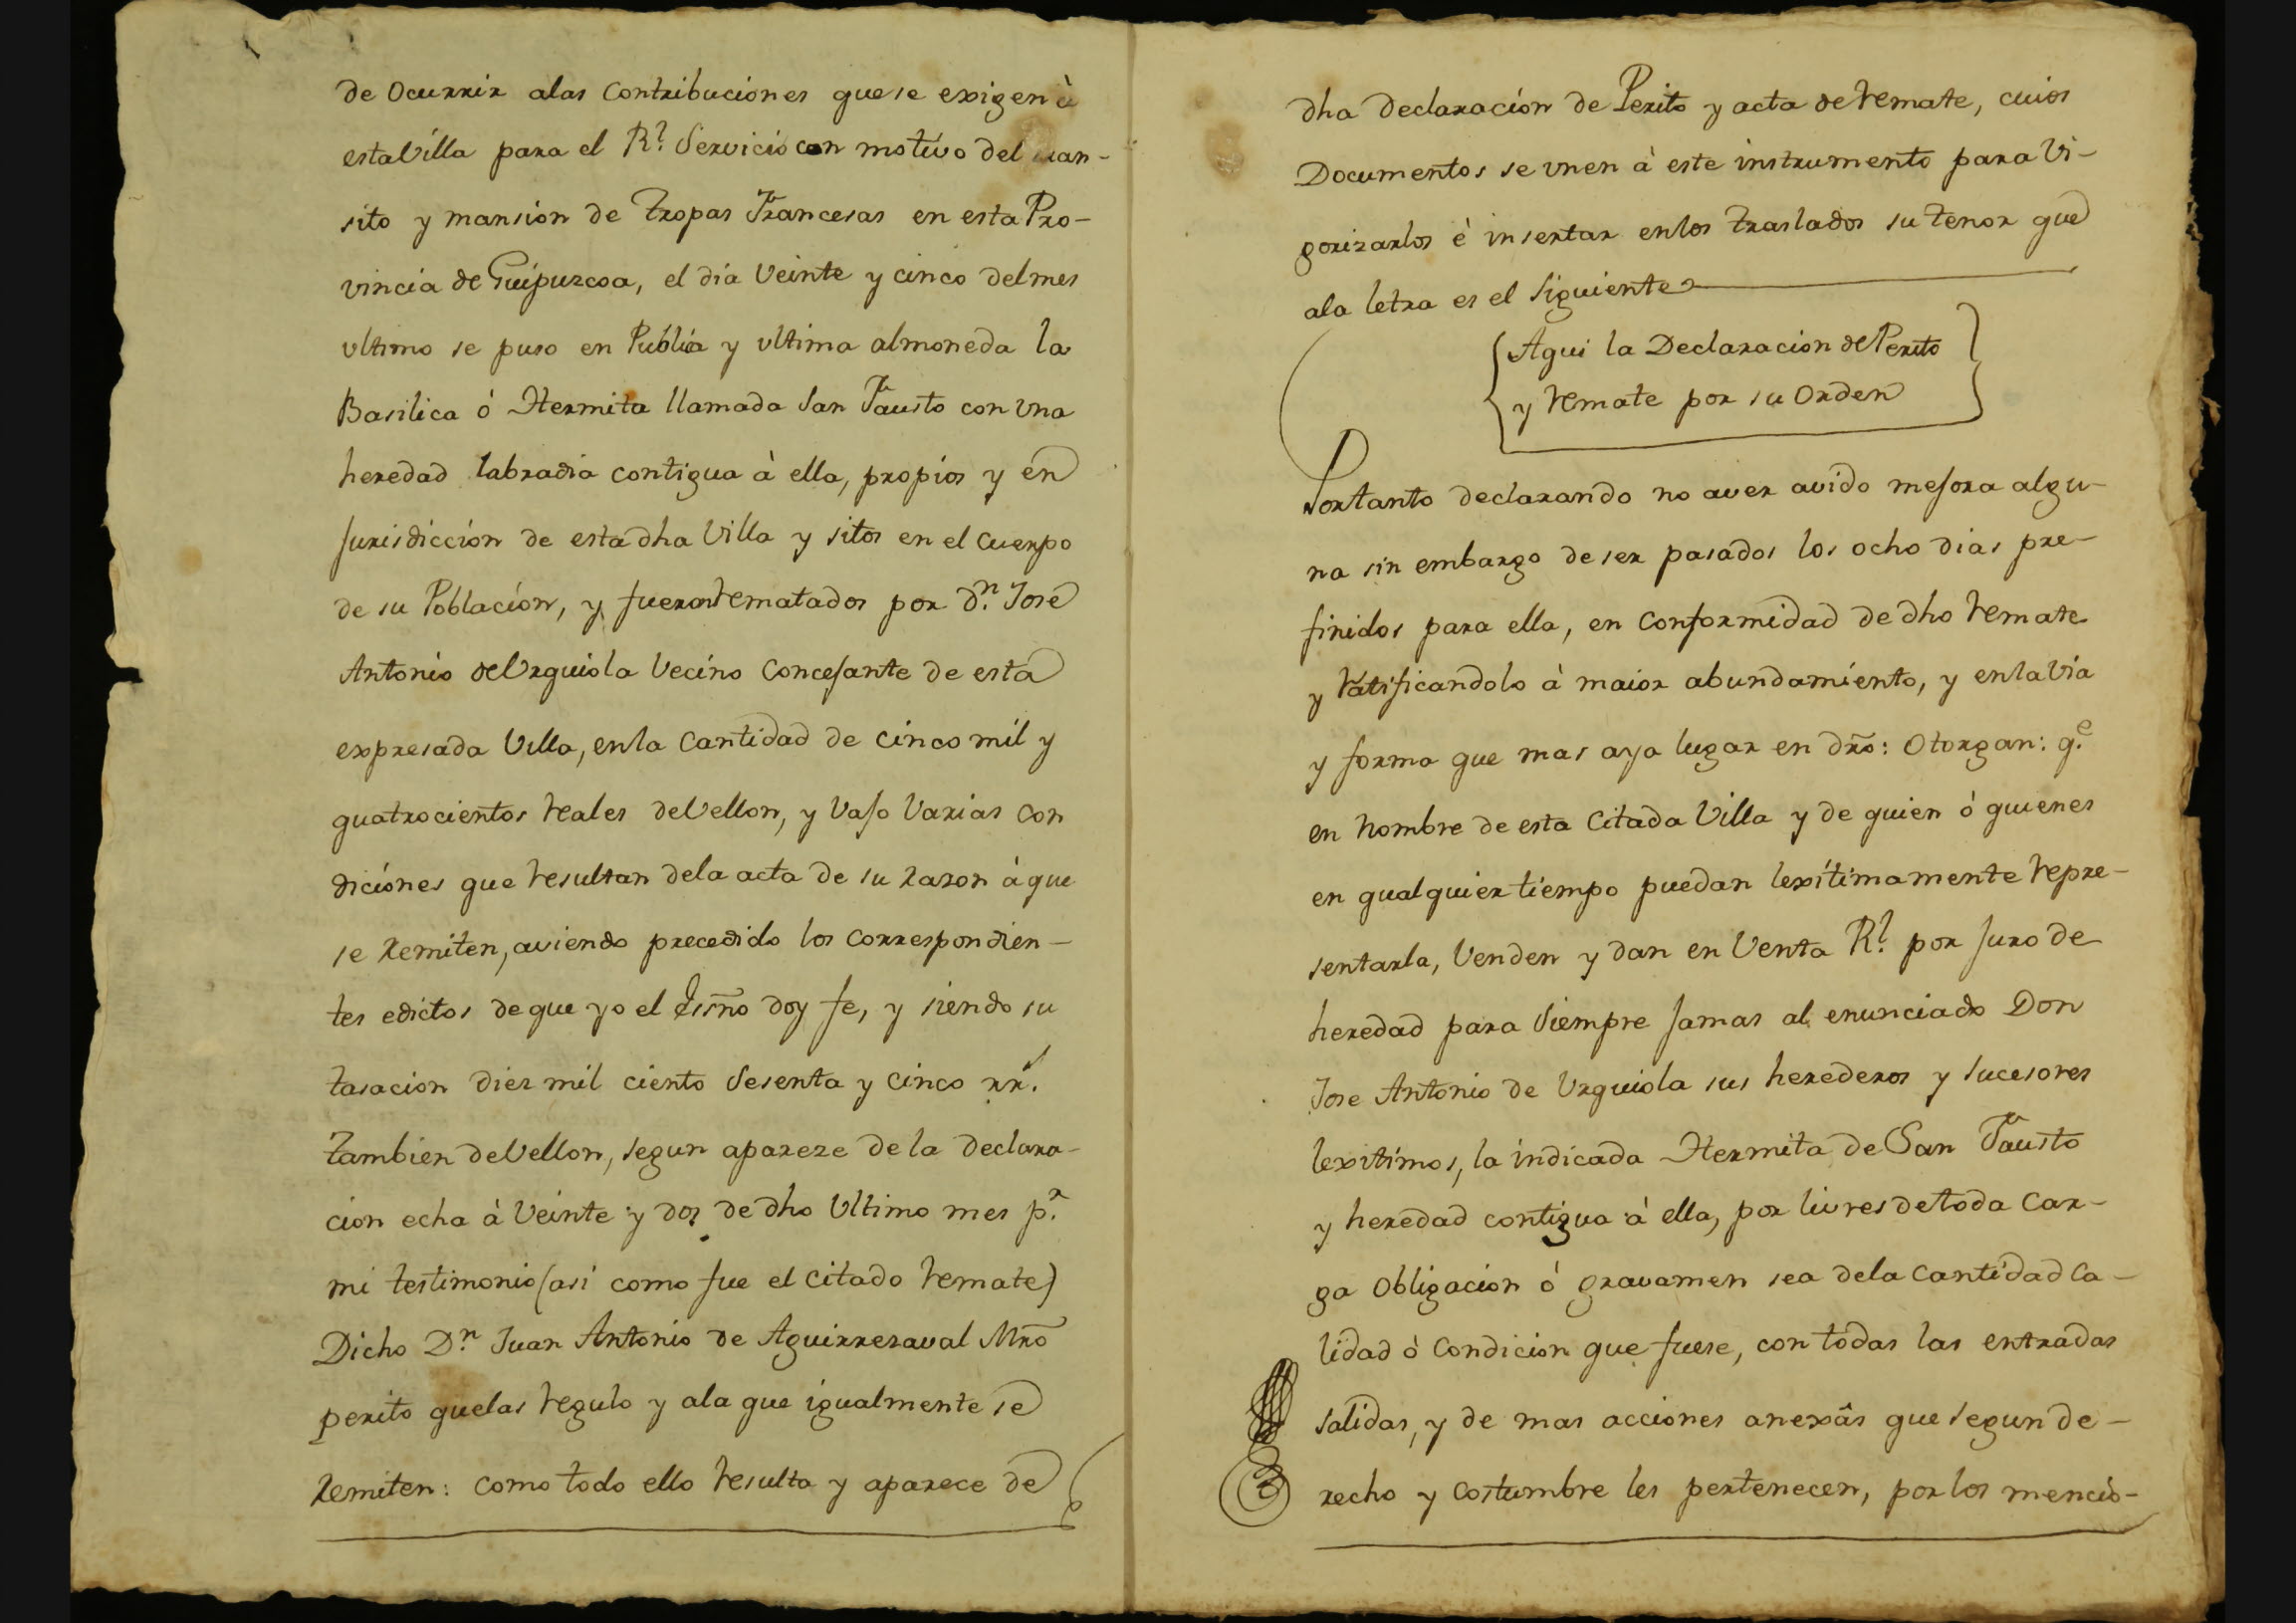 de ocurrir alas Contribuciones que se exigen à
esta Villa para el R.l Servicio con motivo del tran-
sito y mansion de tropas Francesas en esta Pro-
vincia de Guipuzcoa, el dia Veinte y cinco del mes
ultimo se puso en Publica y ultima almoneda la
Basilica ó Hermita llamada San Fausto con una
heredad labradia contigua à ella, propios y en
Jurisdiccion de esta dha Villa y sitos en el cuerpo
de su Poblacion, y fueron rematados por d.n Jose
Antonio de Urquiola Vecino Concejante de esta
expresada Villa, en la Cantidad de cinco mil y
quatrocientos reales de Vellon, y Vajo Varias con
diciones que resultan dela acta de su razon à que
se remiten, aviendo precedido los correspondien-
tes edictos de que yo el Esno doy fe, y siendo su
tasacion diez mil ciento sesenta y cinco rr.s
tambien de Vellon, segun apareze de la declara-
cion echa à Veinte y dos de dho Ultimo mes p.r
mi testimonio (asi como fue el citado remate)
Dicho D.n Juan Antonio de Aguirrezaval Mro
perito que las regulo y ala que igualmente se
remiten: como todo ello resulta y aparece de
dha declaracion de Perito y acta de remate, cuios
Documentos se unen à este instrumento para Vi-
gorizarlos è insertar en los traslados su tenor que
ala letra es el siguiente
Aqui la Declaracion del Perito
y remate por su Orden
Por tanto declarando no aver avido mejora algu-
na sin embargo de ser pasados los ocho dias pre-
finidos para ella, en conformidad de dho remate
y ratificandolo à maior abundamiento, y en la Via
y forma que mas aya lugar en dro: Otorgan: q.e
en nombre de esta Citada Villa y de quien ó quienes
en qualquier tiempo puedan lexitimamente repre-
sentarla, Venden y dan en Venta R.l por juro de
heredad para siempre jamas al enunciado Don
Jose Antonio de Urquiola sus herederos y sucesores
lexitimos, la indicada Hermita de San Fausto
y heredad contigua à ella, por livres de toda Car-
ga Obligacion ó gravamen sea dela cantidad Ca-
lidad ò Condicion que fuese, con todas las entradas
salidas, y de mas acciones anexâs que segun de-
recho y costumbre les pertenecen, por los mencio-